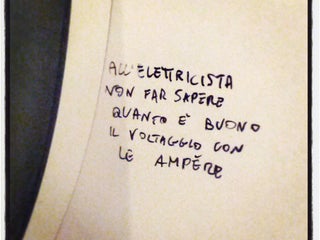 ALL'ELETTRICISTA
NON FAR SAPERE
QUANTO È BUONO
IL VOLTAGGIO CON
LE AMPÈRE